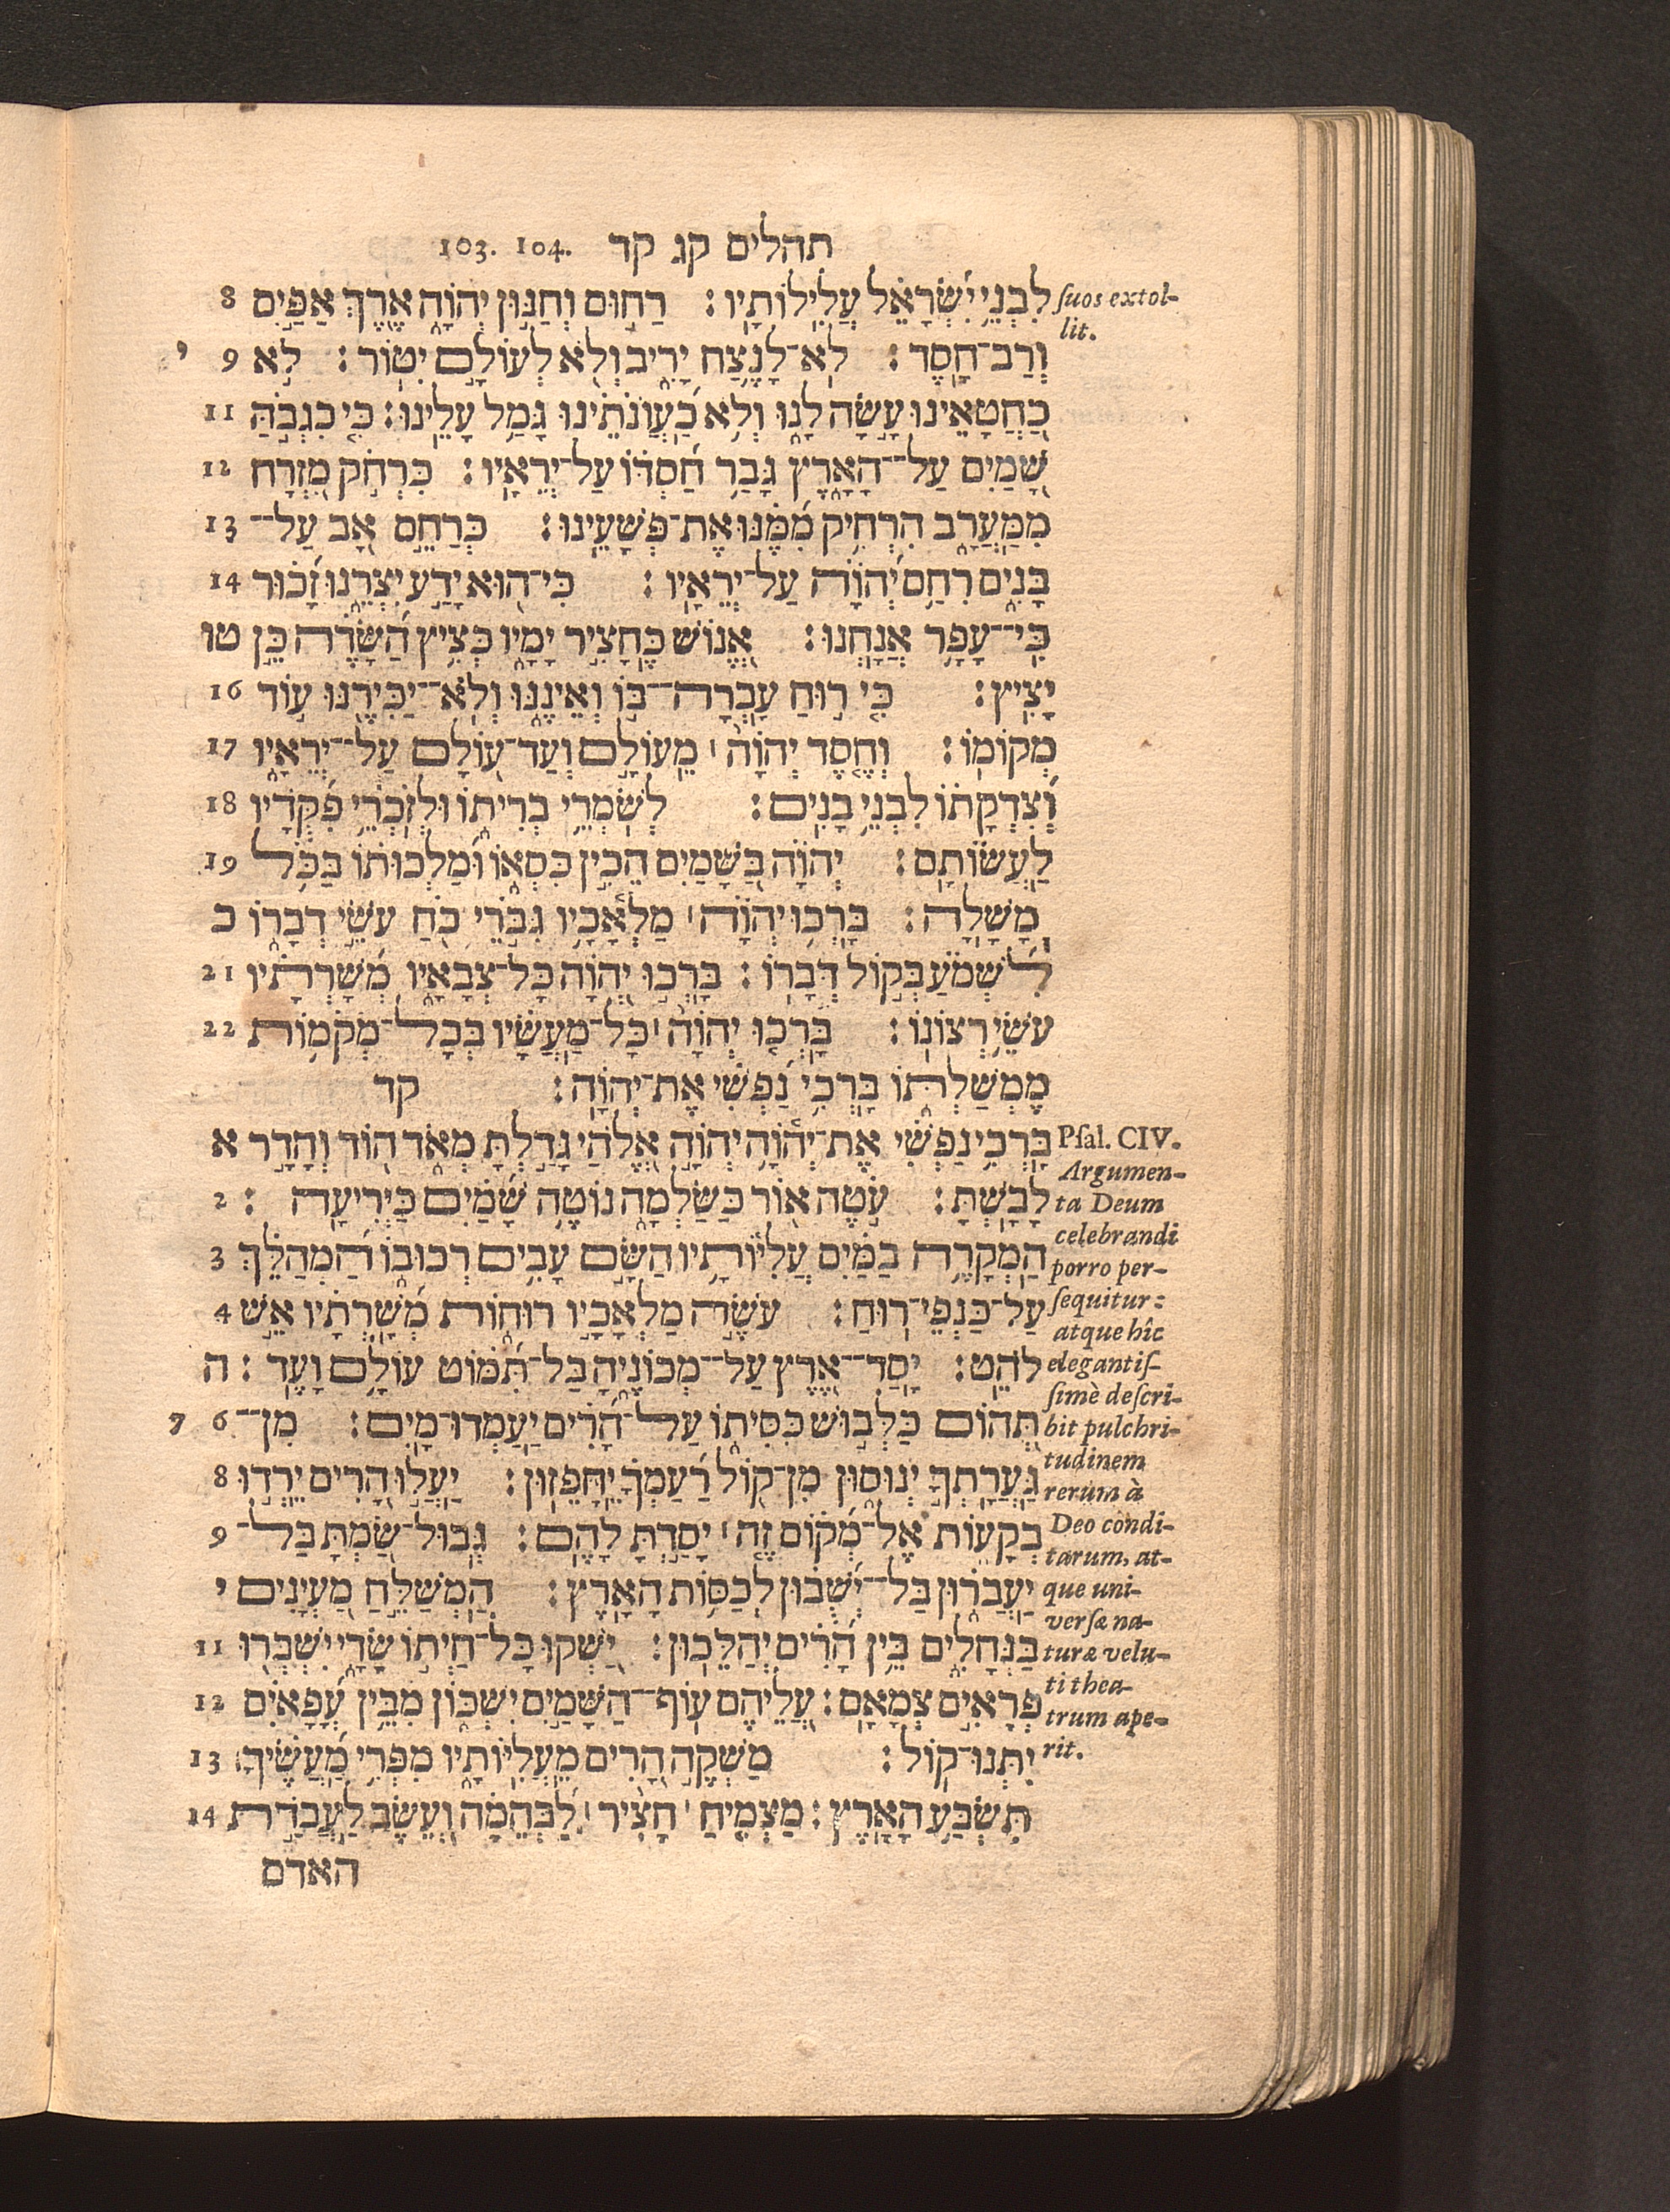 תהלים קג קד 103. 104.
לִבְנֵי יִשְׂרָאֵל עֲלִילוֹתָיו׃ רַחוּם וְחַנּוּן יְהוָה אֶרֶךְ אַפַּיִם 8
וְרַב־חָסֶד׃ לֹא־לָנֶצַח יָרִיב וְלֹא לְעוֹלָם יִטּוֹר׃ לֹא 9 י
כַחֲטָאֵינוּ עָשָׂה לָנוּ וְלֹא כַעֲוֹנֹתֵינוּ גָּמַל עָלֵינוּ׃ כִּי כִגְבֹהַּ 11
שָׁמַיִם עַל־הָאָרֶץ גָּבַר חַסְדּוֹ עַל־יְרֵאָיו׃ כִּרְחֹק מִזְרָח 12
מִמַּעֲרָב הִרְחִיק מִמֶּנּוּ אֶת־פְּשָׁעֵינוּ׃ כְּרַחֵם אָב עַל־ 13
בָּנִים רִחַם יְהוָה עַל־יְרֵאָיו׃ כִּי־הוּא יָדַע יִצְרֵנוּ זָכוּר 14
כִּי־עָפָר אֲנָחְנוּ׃ אֱנוֹשׁ כֶּחָצִיר יָמָיו כְּצִיץ הַשָּׂדֶה כֵּן טו
יָצִיץ׃ כִּי רוּחַ עָבְרָה־בּוֹ וְאֵינֶנּוּ וְלֹא־יַכִּירֶנּוּ עוֹד 16
מְקוֹמוֹ׃ וְחֶסֶד יְהוָה ׀ מֵעוֹלָם וְעַד־עוֹלָם עַל־יְרֵאָיו 17
וְצִדְקָתוֹ לִבְנֵי בָנִים׃ לְשֹׁמְרֵי בְרִיתוֹ וּלְזֹכְרֵי פִקֻּדָיו 18
לַעֲשׂוֹתָם׃ יְהוָה בַּשָּׁמַיִם הֵכִין כִּסְאוֹ וּמַלְכוּתוֹ בַּכֹּל 19
מָשָׁלָה׃ בָּרְכוּ יְהוָה ׀ מַלְאָכָיו גִּבֹּרֵי כֹחַ עֹשֵׂי דְבָרוֹ כ
לִשְׁמֹעַ בְּקוֹל דְּבָרוֹ׃ בָּרְכוּ יְהוָה כָּל־צְבָאָיו מְשָׁרְתָיו 21
עֹשֵׂי רְצוֹנוֹ׃ בָּרְכוּ יְהוָה ׀ כָּל־מַעֲשָׂיו בְּכָל־מְקֹמוֹת 22
מֶמְשַׁלְתּוֹ בָּרְכִי נַפְשִׁי אֶת־יְהוָה׃ קד
בָּרְכִי נַפְשִׁי אֶת־יְהוָה יְהוָה אֱלֹהַי גָּדַלְתָּ מְּאֹד הוֹד וְהָדָר א
לָבָשְׁתָּ׃ עֹטֶה אוֹר כַּשַּׂלְמָה נוֹטֶה שָׁמַיִם כַּיְרִיעָה׃ 2
הַמְקָרֶה בַמַּיִם עֲלִיּוֹתָיו הַשָּׂם עָבִים רְכוּבוֹ הַמְהַלֵּךְ 3
עַל־כַּנְפֵי־רוּחַ׃ עֹשֶׂה מַלְאָכָיו רוּחוֹת מְשָׁרְתָיו אֵשׁ 4
לֹהֵט׃ יָסַד־אֶרֶץ עַל־מְכוֹנֶיהָ בַּל־תִּמּוֹט עוֹלָם וָעֶד׃ ה
תְּהוֹם כַּלְּבוּשׁ כִּסִּיתוֹ עַל־הָרִים יַעַמְדוּ מָיִם׃ מִן־ 6 7
גַּעֲרָתְךָ יְנוּסוּן מִן־קוֹל רַעַמְךָ יֵחָפֵזוּן׃ יַעֲלוּ הָרִים יֵרְדוּ 8
בְקָעוֹת אֶל־מְקוֹם זֶה ׀ יָסַדְתָּ לָהֶם׃ גְּבוּל־שַׂמְתָּ בַּל־ 9
יַעֲבֹרוּן בַּל־יְשֻׁבוּן לְכַסּוֹת הָאָרֶץ׃ הַמְשַׁלֵּחַ מַעְיָנִים י
בַּנְּחָלִים בֵּין הָרִים יְהַלֵּכוּן׃ יַשְׁקוּ כָּל־חַיְתוֹ שָׂדָי יִשְׁבְּרוּ 11
פְרָאִים צְמָאָם׃ עֲלֵיהֶם עוֹף־הַשָּׁמַיִם יִשְׁכּוֹן מִבֵּין עֳפָאיִם 12
יִתְּנוּ־קוֹל׃ מַשְׁקֶה הָרִים מֵעֲלִיּוֹתָיו מִפְּרִי מַעֲשֶׂיךָ 13
תִּשְׂבַּע הָאָרֶץ׃ מַצְמִיחַ חָצִיר ׀ לַבְּהֵמָה וְעֵשֶׂב לַעֲבֹדַת 14
האדם
ſuos extol-
lit.
Pſal. CIV.
Argumen-
ta Deum
celebrandi
porro per-
ſequitur:
atque hîc
elegantiſ-
ſimè deſcri-
bit pulchri-
tudinem
rerum à
Deo condi-
tarum, at-
que uni-
verſæ na-
turæ velu-
ti thea-
trum ape-
rit.